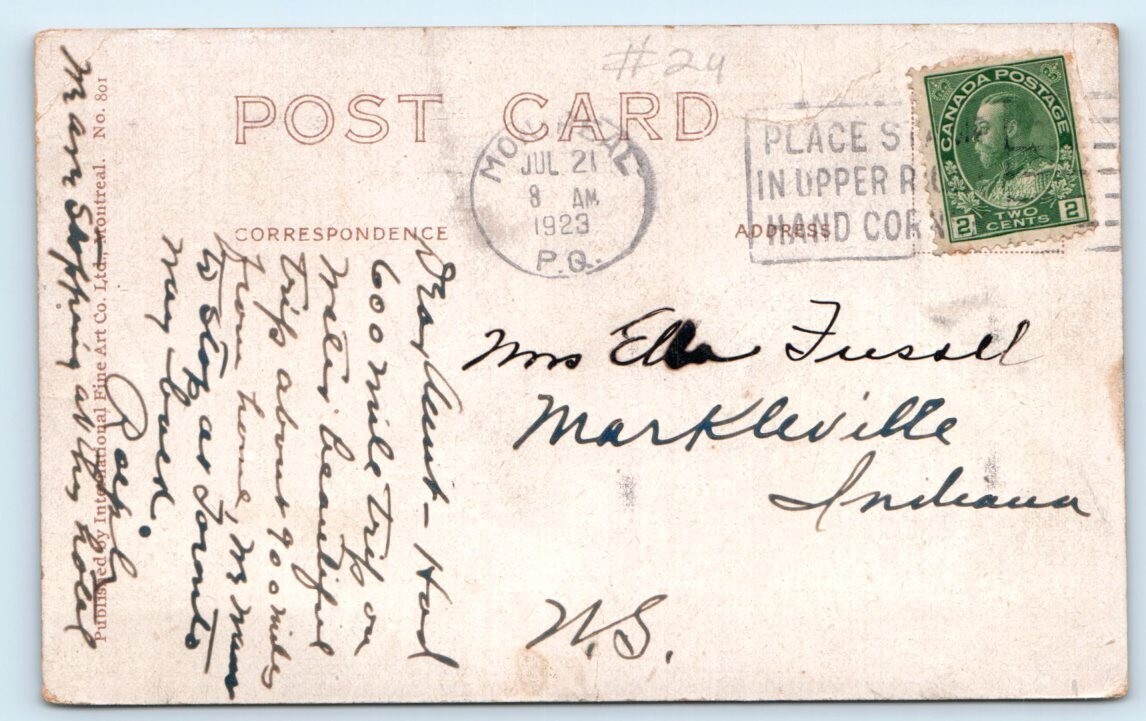 #24
POST CARD
CORRESPONDENCE
ADDRESS
MONTREAL
JUL 21
8 AM
1923
P.Q.
PLACE STAMP
IN UPPER RIGHT
HAND CORNER
CANADA POSTAGE
2 TWO CENTS 2
Mrs Ella Fussell
Markleville
Indiana
U.S.
Dear Aunt - Had
600 mile trip on
Water beautiful
trip about 900 miles
from home, Mr
to stop at Toronto
way back.
Ralph
Mare Stopping at this hotel
Published by International Fine Art Co. Ltd., Montreal. No. 801